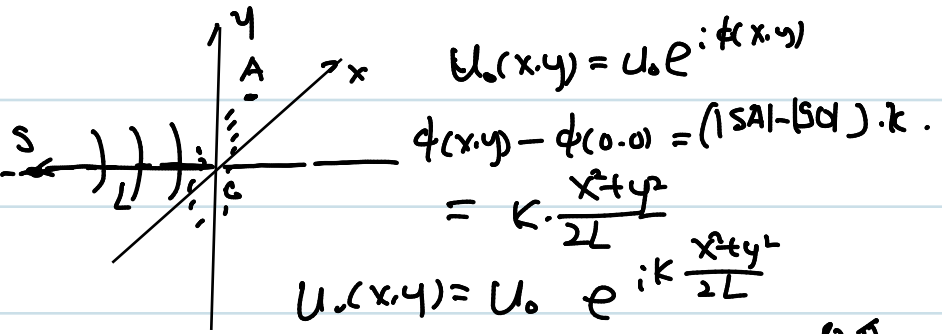 y
A
x
S
L
U₀(x.y) = u₀e^{iϕ(x.y)}
ϕ(x.y) − ϕ(0.0) = (|SA|−|SO|).k.
= K. \frac{x²+y²}{2L}
U₀(x.y) = U₀ e^{iK \frac{x²+y²}{2L}}